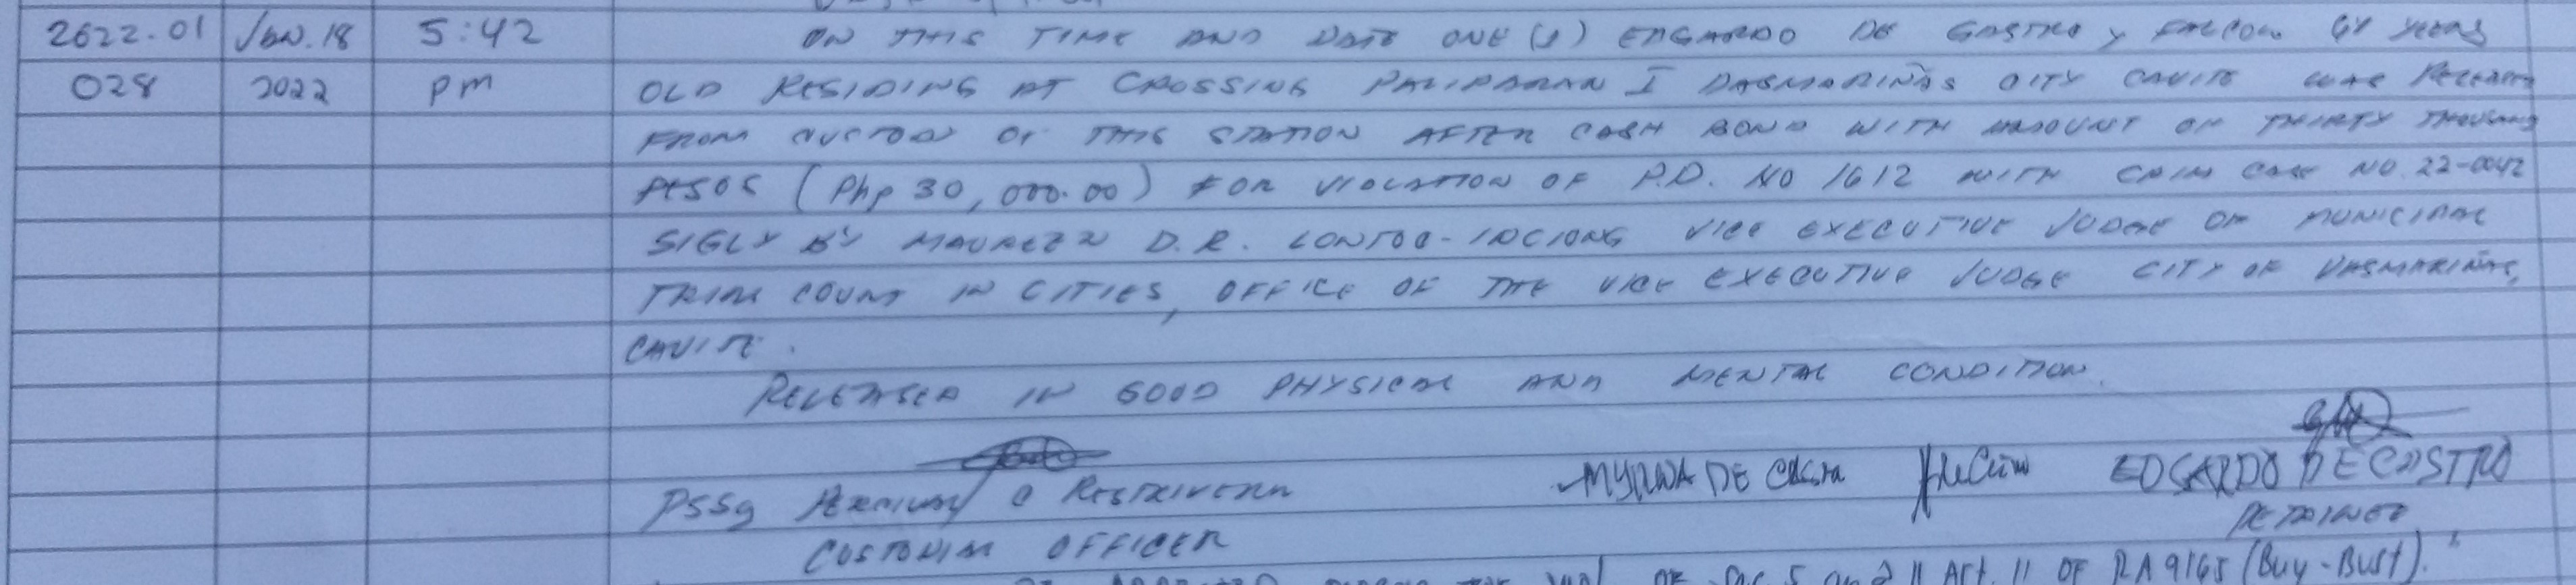 2022.01 Jan. 18 5:42 ON THIS TIME AND DATE ONE (1) EDGARDO DE CASTRO y FALCON 64 YEARS
028 2022 pm OLD RESIDING AT CROSSING PALIPARAN I DASMARIÑAS CITY CAVITE WAS RELEASED
FROM CUSTODY OF THIS STATION AFTER CASH BOND WITH AMOUNT OF THIRTY THOUSAND
PESOS (Php 30,000.00) FOR VIOLATION OF P.D. NO 1612 WITH CRIM CASE NO. 22-0042
BY MAUREEN D.R. LONTOC-INCIONG VICE EXECUTIVE JUDGE OF MUNICIPAL
TRIAL COURT IN CITIES, OFFICE OF THE VICE EXECUTIVE JUDGE CITY OF DASMARIÑAS,
CAVITE.
RELEASED IN GOOD PHYSICAL AND MENTAL CONDITION.
PSSg
MYRNA DE CASTRO EDGARDO DE CASTRO
DETAINEE
CUSTODIAL OFFICER
OF Sec 5 and 11 Art. 11 OF RA 9165 (Buy-Bust)."